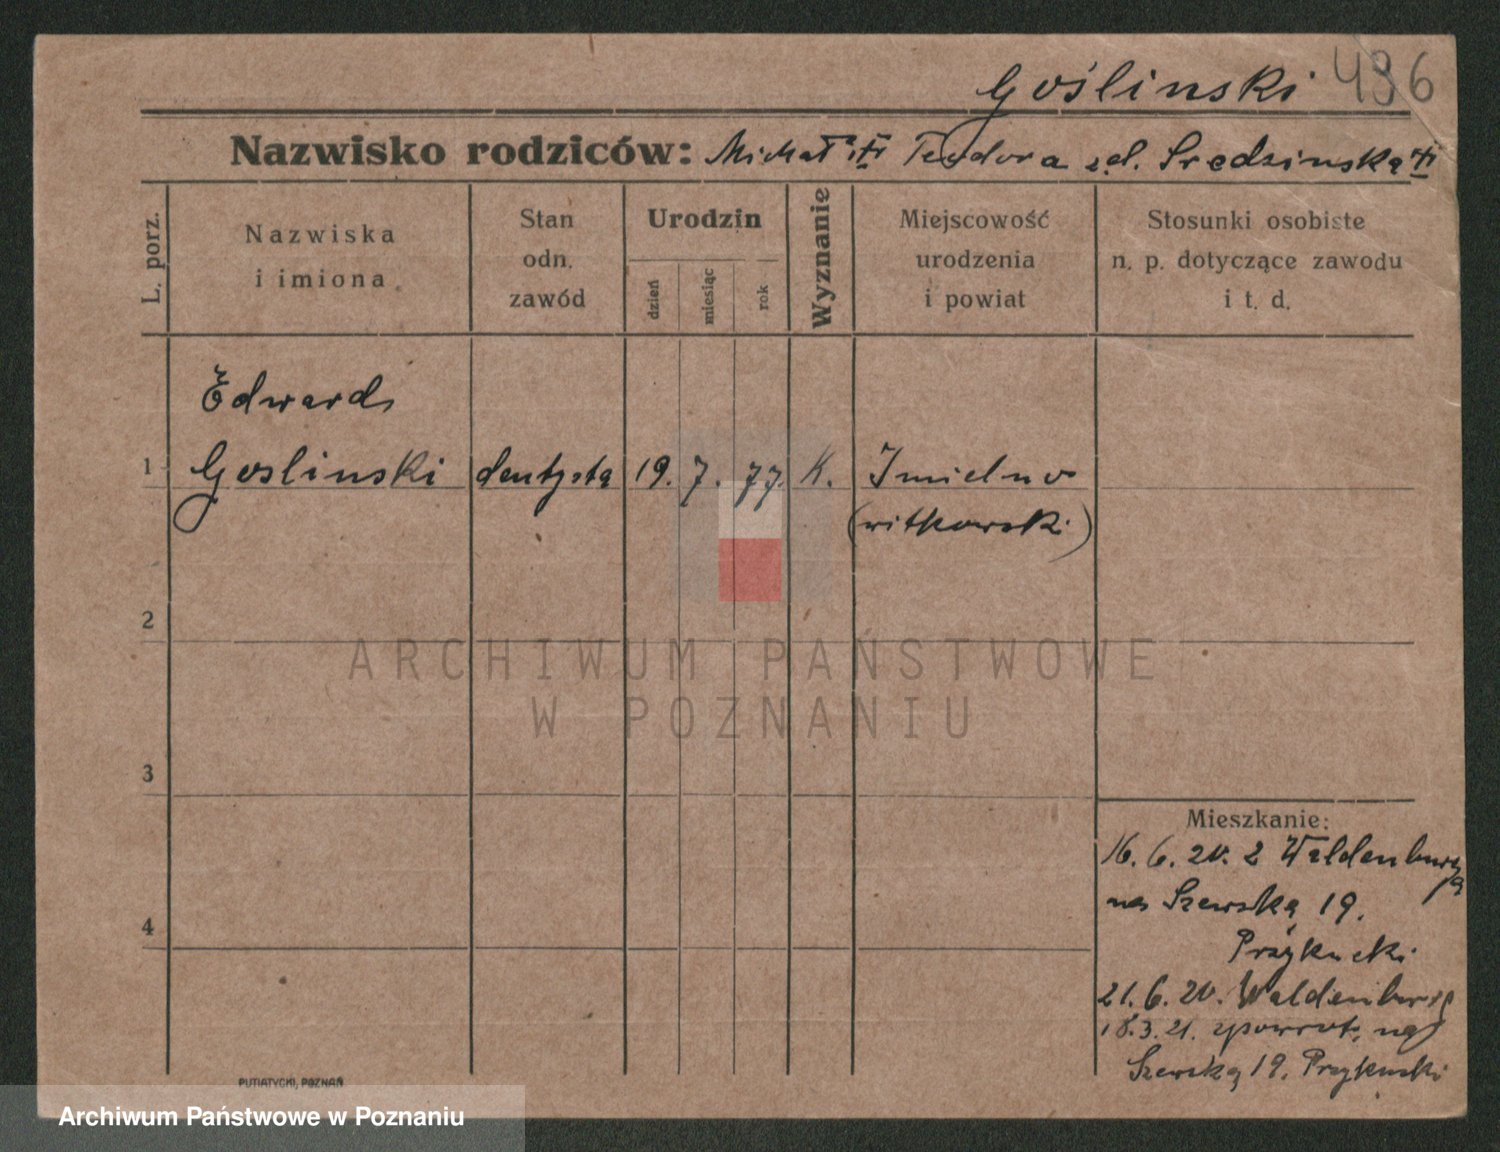 Gośliński 436
Nazwisko rodziców: Michał Teodora z d. Sredzinska
L. porz.
Nazwiska
i imiona
Stan
odn.
zawód
Urodzin
dzień
miesiąc
rok
Wyznanie
Miejscowość
urodzenia
i powiat
Stosunki osobiste
n. p. dotyczące zawodu
i t. d.
Edward
1 Goslinski dentysta 19. 7. 77. K. Imielno
(witkowski)
2
ARCHIWUM PAŃSTWOWE
W POZNANIU
3
Mieszkanie:
16. 6. 20. z Waldenburga
na Szewską 19.
4
21. 6. 20. Waldenburg
18. 3. 21. zpowrot. na
Szewską 19.
PUTIATYCKI, POZNAŃ
Archiwum Państwowe w Poznaniu